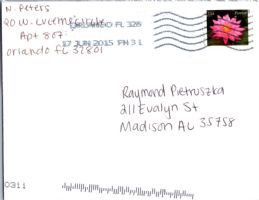 N. Peters
20 W. Lucerne Circle
ORLANDO FL 328
Apt 807
17 JUN 2015 PM 3 L
orlando fl 32801
Raymond Pietruszka
211 Evalyn St
Madison AL 35758
0311